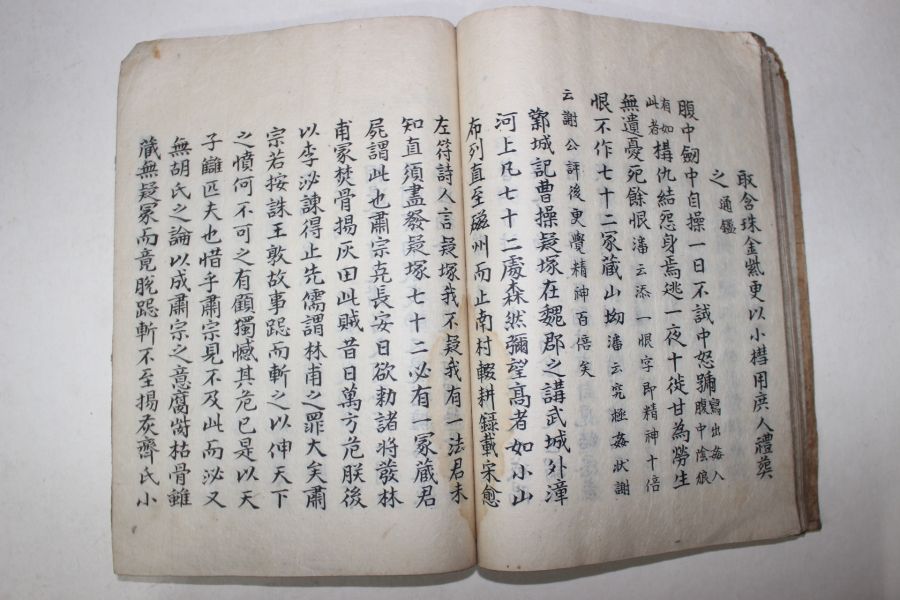 取含珠金紫更以小槥用庶人禮葬
之通鑑
腹中劒中自操一日不試中怒號寫出姦人腹中陰狠
有如此者構仇結怨身焉逃一夜十徙甘為勞生
無遺憂死餘恨潘云添一恨字即精神十倍
恨不作七十二冢藏山坳潘云究極姦狀謝
云謝公評後更覺精神百倍矣
鄴城記曹操疑塚在魏郡之講武城外漳
河上凡七十二處森然彌望高者如小山
布列直至磁州而止南村輟耕錄載宋愈
左符詩人言疑塚我不疑我有一法君未
知直須盡發疑塚七十二必有一冢藏君
屍謂此也肅宗克長安日欲勅諸將發林
甫冢焚骨揚灰曰此賊昔日萬方危朕後
以李泌諫得止先儒謂林甫之罪大矣肅
宗若按誅王敦故事跽而斬之以伸天下
之憤何不可之有顧獨憾其危已是以天
子讎匹夫也惜乎肅宗見不及此而泌又
無胡氏之論以成肅宗之意腐胔枯骨雖
藏無疑冢而竟脫跽斬不至揚灰齊氏小